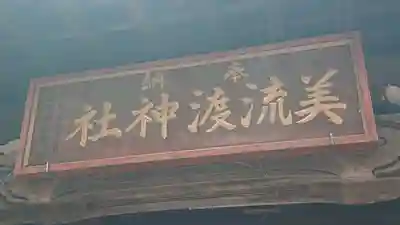 奉納
美流渡神社